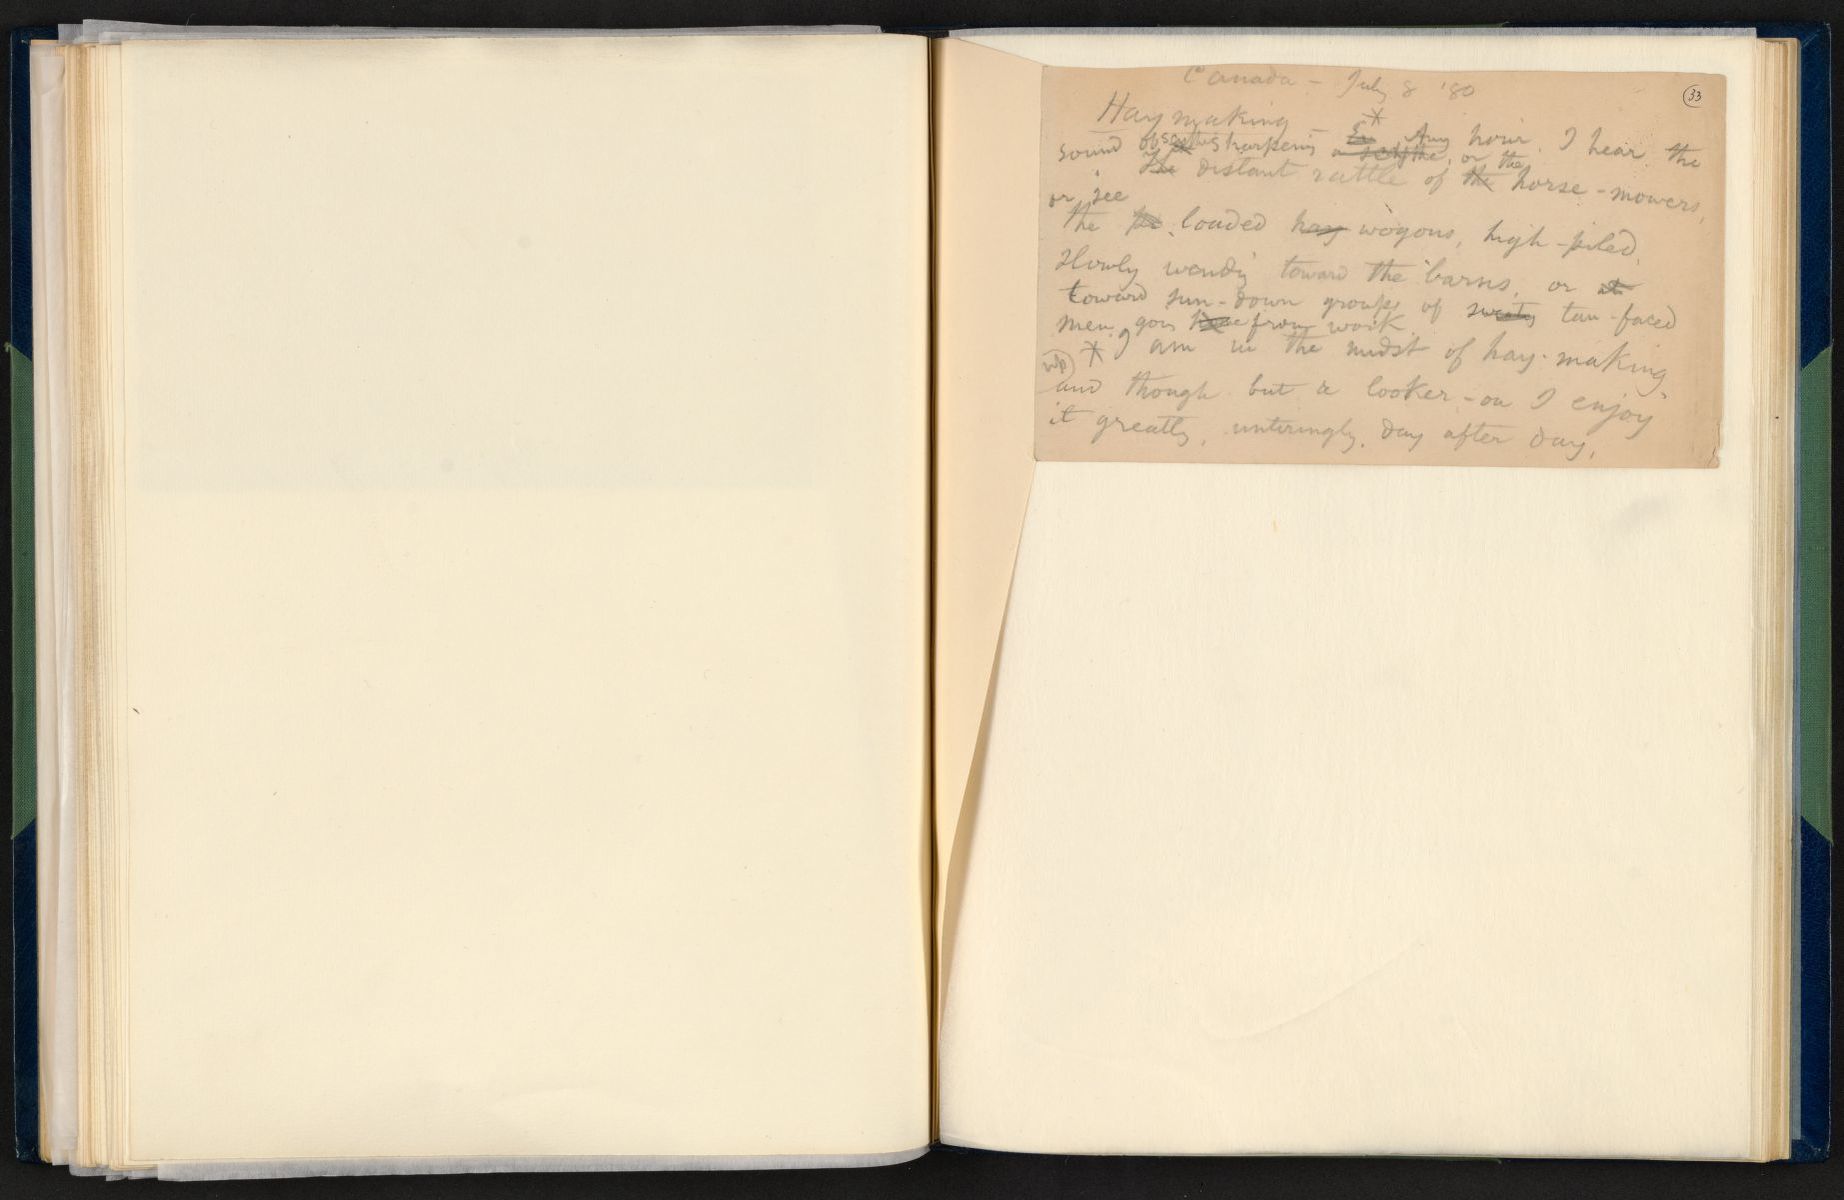 Canada – July 8 '80
33
Haymaking – * En Any hour I hear the
sound of scythe sharpening a scythe, or the
The distant rattle of the horse-mowers,
or see
the loaded hay wagons, high-piled,
slowly wending toward the barns, or at
toward sun-down groups of sweaty tan-faced
men going home from work
* I am in the midst of hay-making
up
and though but a looker-on I enjoy
it greatly, untiringly, day after day,